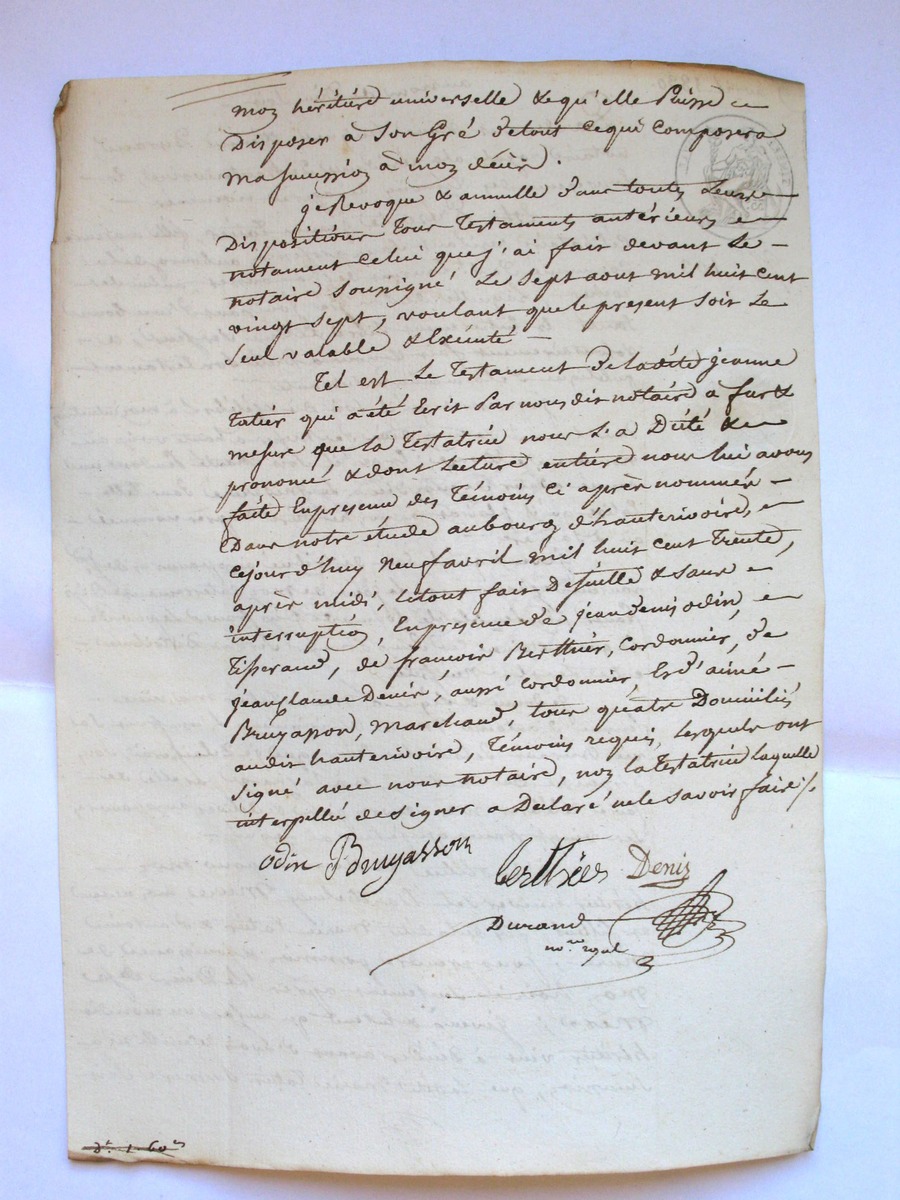 mon héritiére universelle & qu'elle Puisse
Disposer a Son Gré de tout ce qui Composera
ma sucession à mon décès.
je Revoque & annulle Par toutes Leurs
Dispositions Tous Testaments antérieurs
notament Celui que j'ai fait devant Le
notaire Sousigné Le Sept aout mil huit cent
vingt Sept, voulant que le present Soit Le
Seul valable & Exécuté
Tel est Le Testament de Ladite jeanne
Tatier qui a été Ecrit Par nous dit notaire a fur &
mesure que La Testatrice nous L'a Dicté &
prononcé & dont Lecture entière nous lui avons
faite En presence des Témoins Ci après nommés
Dans notre étude au bourg d'hauterivoire,
Cejourd'huy Neuf avril mil huit Cent Trente,
après midi, Letout fait De Suitte & Sans
interruption, En presence de jean denis odin,
Tisserand, de francois Berthier, Cordonnier, de
jean Claude Denis, aussi Cordonnier, Et d'aimé
Bruyasson, Marchand, tous quatre Domiciliés
audit hauterivoire, Témoins requis, Lesquels ont
Signé avec nous notaire, non la Testatrice Laquelle
interpellé de Signer a Declaré ne le Savoir faire
odin Bruyasson Berthier Denis
Durand
no.re royal